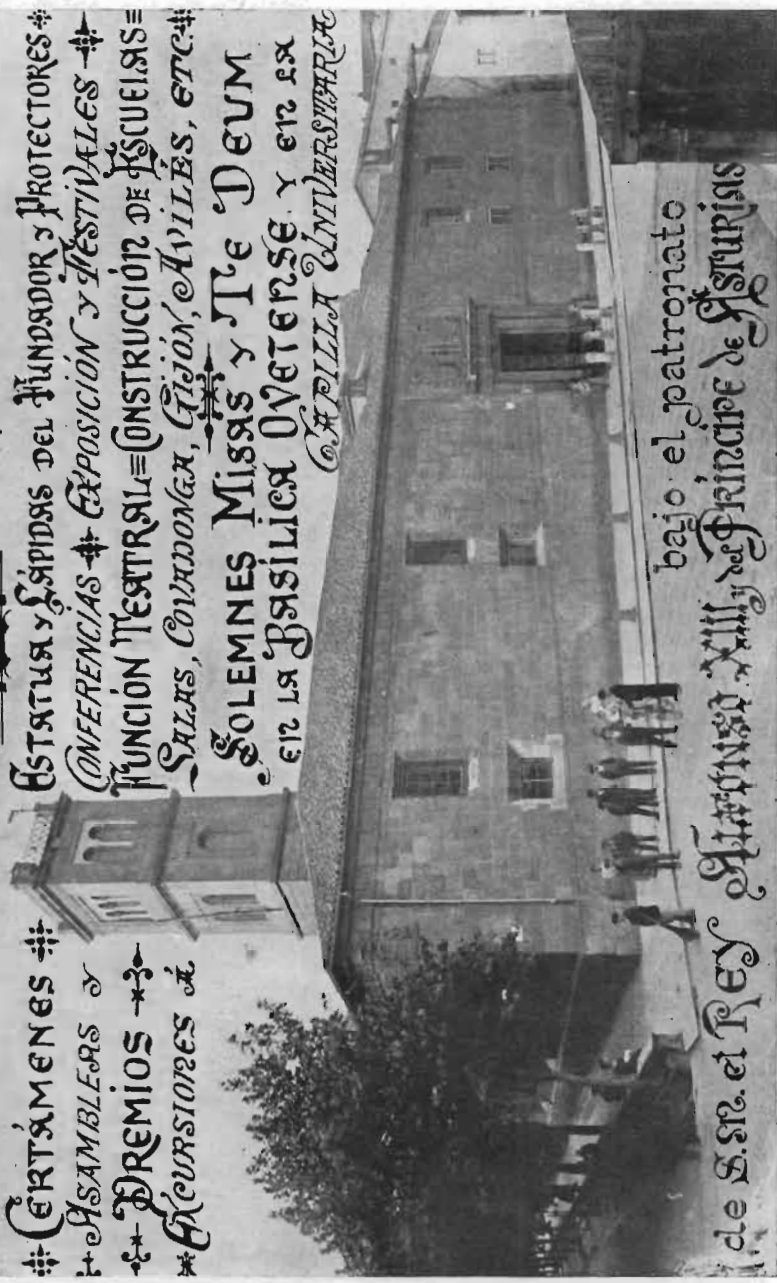 CERTÁMENES ESTATUA Y LÁPIDAS DEL FUNDADOR Y PROTECTORES
ASAMBLEAS Y CONFERENCIAS EXPOSICIÓN Y FESTIVALES
PREMIOS FUNCIÓN TEATRAL=CONSTRUCCIÓN DE ESCUELAS=
EXCURSIONES Á SALAS, COVADONGA, GIJÓN, AVILÉS, ETC.
SOLEMNES MISAS Y TE DEUM
EN LA BASÍLICA OVETENSE Y EN LA
CAPILLA UNIVERSITARIA
bajo el patronato
de S.M. el REY ALFONSO XIII y del PRÍNCIPE de ASTURIAS